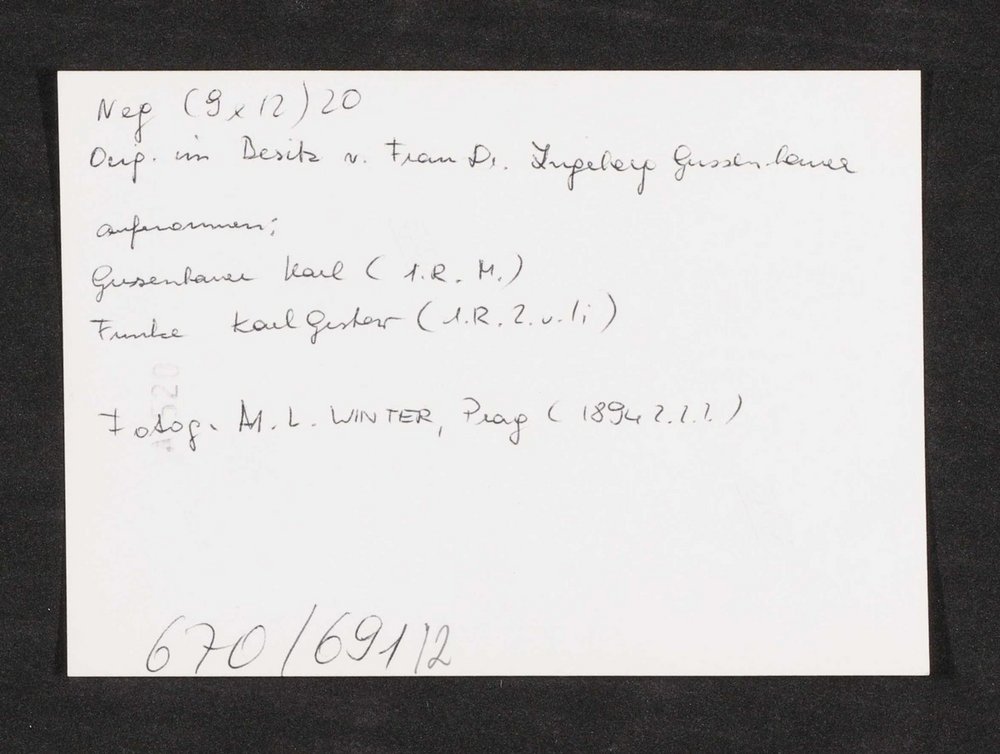 Neg (9x12) 20
Orig. im Besitz v. Frau Dr. Ingeborg Gussenbauer
aufgenommen:
Gussenbauer Karl (1.R. M.)
Funke Karl Gustav (1.R. 2. v. li)
Fotog. M. L. WINTER, Prag (1894 ? ? ?)
670/691/2